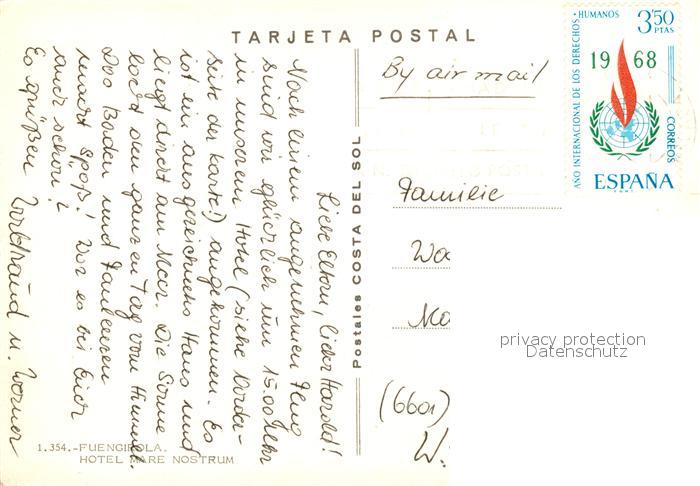 TARJETA POSTAL
Liebe Eltern, lieber Harold!
Nach einem angenehmen Flug
sind wir glücklich um 15.00 Uhr
in unserem Hotel (siehe Vorder-
seite der Karte!) angekommen. Es
ist ein ausgezeichnetes Haus und
liegt direkt am Meer. Die Sonne
lacht den ganzen Tag vom Himmel.
Das Baden und Faulenzen
macht Spaß! War es bei Euch
auch schön?
Es grüßen
u. Werner
1.354.-FUENGIROLA.
HOTEL MARE NOSTRUM
Postales COSTA DEL SOL
By air mail
Familie
Wa
Ma
(6601)
W.
AÑO INTERNACIONAL DE LOS DERECHOS · HUMANOS
3'50
PTAS
1968
CORREOS
ESPAÑA
privacy protection
Datenschutz